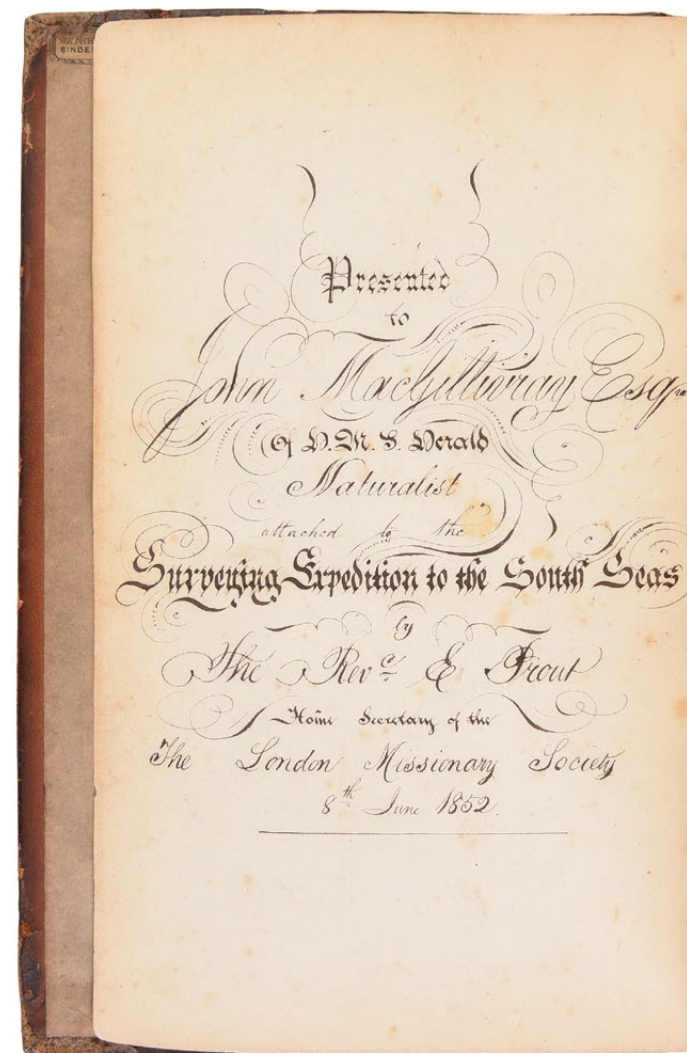 BINDE
Presented
to
John MacGillivray Esqre
(Of H.M.S. Herald
Naturalist
attached to the
Surveying Expedition to the South Seas
by
The Revd E Prout
Home Secretary of the
The London Missionary Society
8th June 1852.